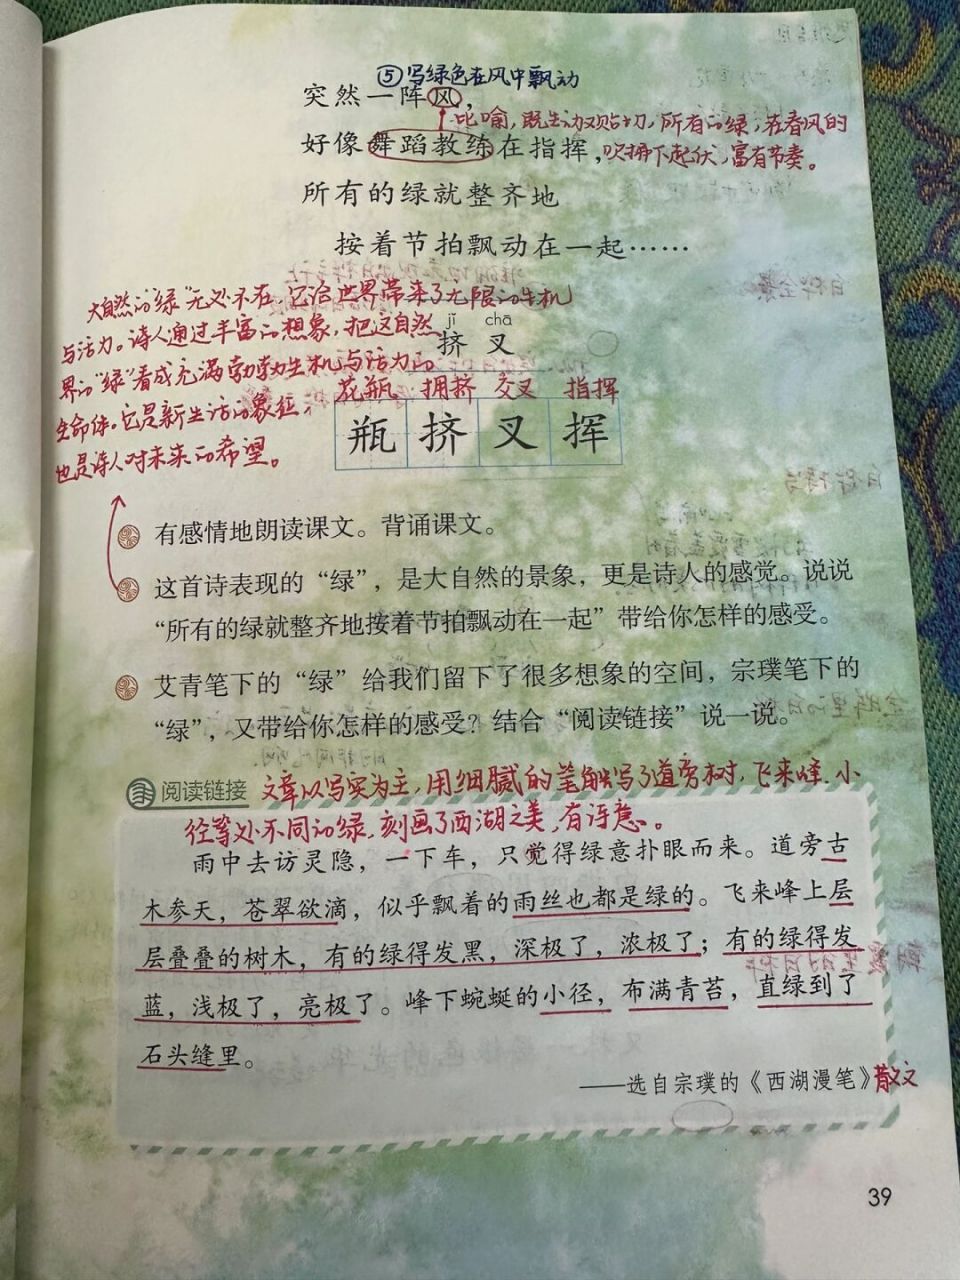 ⑤写绿色在风中飘动
突然一阵风，
比喻，既生动又贴切，所有的绿，在春风的
好像舞蹈教练在指挥，
吹拂下起伏，富有节奏。
所有的绿就整齐地
按着节拍飘动在一起……
大自然的“绿”无处不在，它给世界带来了无限的生机
与活力。诗人通过丰富的想象，把这自然
界的“绿”看成充满勃勃生机与活力的
生命体。它是新生活的象征，
也是诗人对未来的希望。
jǐ chā
挤 叉
花瓶 拥挤 交叉 指挥
瓶 挤 叉 挥
有感情地朗读课文。背诵课文。
这首诗表现的“绿”，是大自然的景象，更是诗人的感觉。说说
“所有的绿就整齐地按着节拍飘动在一起”带给你怎样的感受。
艾青笔下的“绿”给我们留下了很多想象的空间，宗璞笔下的
“绿”，又带给你怎样的感受？结合“阅读链接”说一说。
阅读链接
文章以写实为主，用细腻的笔触写了道旁树，飞来峰、小
径等处不同的绿，刻画了西湖之美，有诗意。
雨中去访灵隐，一下车，只觉得绿意扑眼而来。道旁古
木参天，苍翠欲滴，似乎飘着的雨丝也都是绿的。飞来峰上层
层叠叠的树木，有的绿得发黑，深极了，浓极了；有的绿得发
蓝，浅极了，亮极了。峰下蜿蜒的小径，布满青苔，直绿到了
石头缝里。
——选自宗璞的《西湖漫笔》散文
39